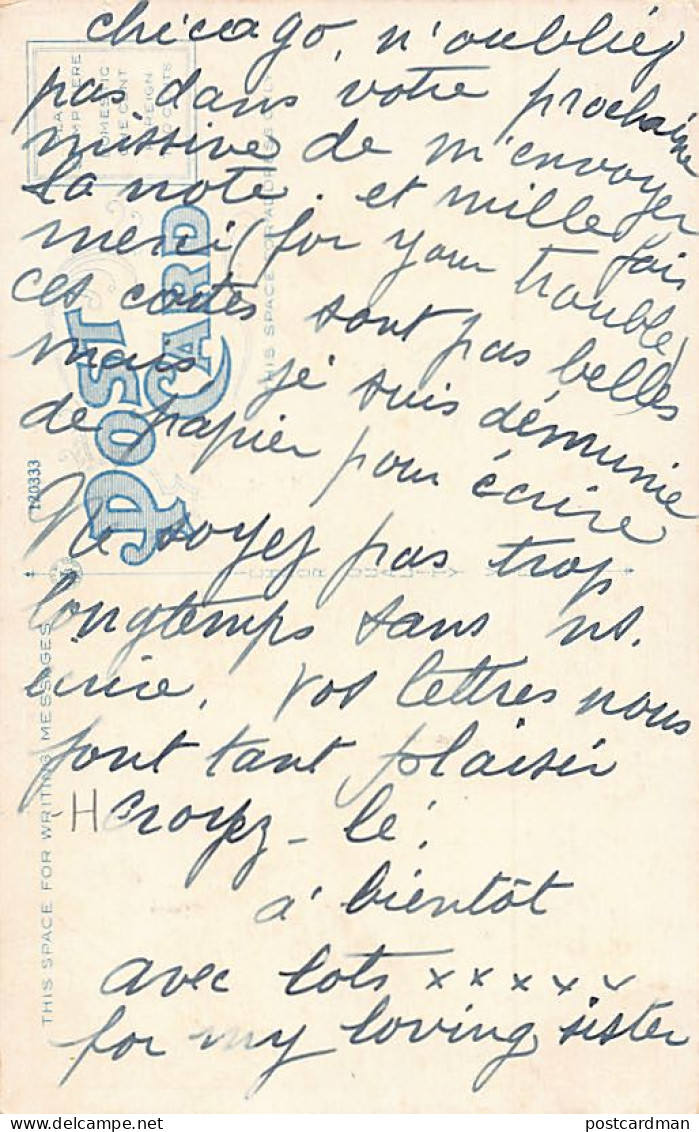 chicago, n'oubliez
pas dans votre prochaine
missive de m'envoyer
la note. et mille fois
merci (for your trouble)
ces cartes sont pas belles
mais je suis démunie
de papier pour écrire
Ne soyez pas trop
longtemps sans ns.
écrire. Vos lettres nous
font tant plaisir
-H croyez-le!
à bientôt
avec lots x x x x x
for my loving sister
POST CARD
PLACE
STAMP HERE
DOMESTIC
ONE CENT
FOREIGN
TWO CENTS
THIS SPACE FOR ADDRESS ONLY
120333
THIS SPACE FOR WRITING MESSAGES
delcampe.net
postcardman